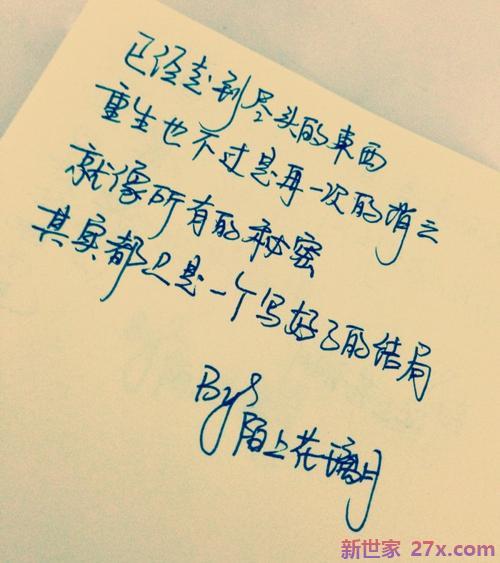 已经走到尽头的東西
重生也不过是再一次的消亡
就像所有的秘密
其实都只是一个写好了的结局
By
陌上花璃月
新世家 27x.com